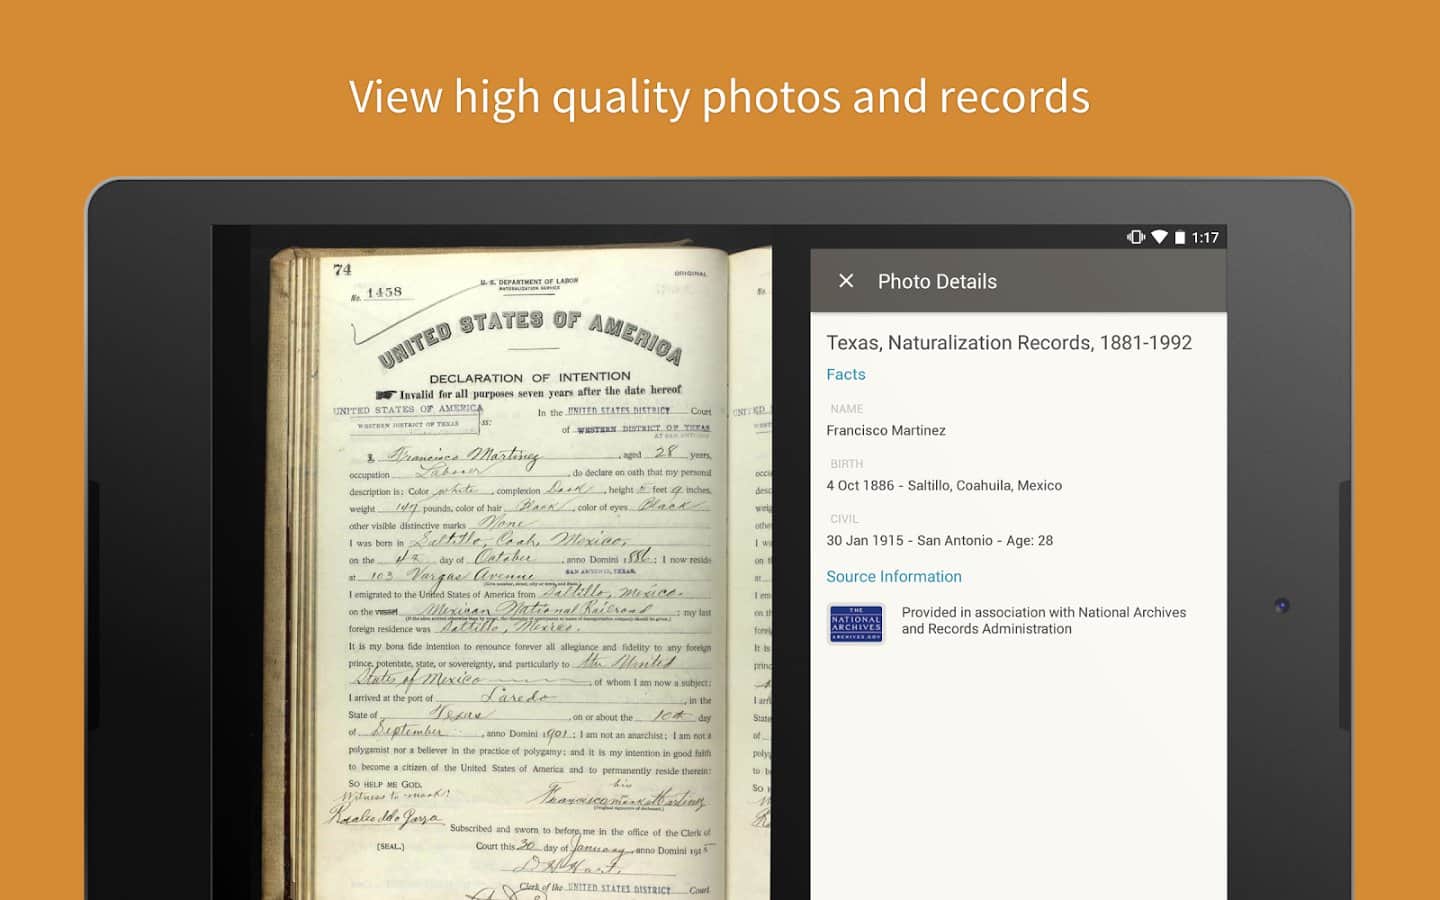 View high quality photos and records
1:17
74
ORIGINAL
No. 1458
U. S. DEPARTMENT OF LABOR
NATURALIZATION SERVICE
UNITED STATES OF AMERICA
DECLARATION OF INTENTION
Invalid for all purposes seven years after the date hereof
UNITED STATES OF AMERICA
WESTERN DISTRICT OF TEXAS
ss:
In the UNITED STATES DISTRICT Court
of WESTERN DISTRICT OF TEXAS
AT SAN ANTONIO
I, Francisco Martinez, aged 28 years,
occupation Laborer, do declare on oath that my personal
description is: Color white, complexion Dark, height 5 feet 9 inches,
weight 147 pounds, color of hair Black, color of eyes Black
other visible distinctive marks None
I was born in Saltillo, Coah, Mexico,
on the day of October, anno Domini 1886; I now reside
at 103 Vargas Avenue SAN ANTONIO, TEXAS.
I emigrated to the United States of America from Saltillo, Mexico.
on the vessel Mexican National Railroad; my last
foreign residence was Saltillo, Mexico.
It is my bona fide intention to renounce forever all allegiance and fidelity to any foreign
prince, potentate, state, or sovereignty, and particularly to the United
States of Mexico, of whom I am now a subject;
I arrived at the port of Laredo, in the
State of Texas, on or about the 10th day
of September, anno Domini 1901; I am not an anarchist; I am not a
polygamist nor a believer in the practice of polygamy; and it is my intention in good faith
to become a citizen of the United States of America and to permanently reside therein:
SO HELP ME GOD.
his
Witness to mark:
Francisco mark Martinez
(Original signature of declarant.)
Garza
Subscribed and sworn to before me in the office of the Clerk of
[SEAL.] Court this 30 day of January, anno Domini 1915
D H Hart,
Clerk of the UNITED STATES DISTRICT Court.
Photo Details
Texas, Naturalization Records, 1881-1992
Facts
NAME
Francisco Martinez
BIRTH
4 Oct 1886 - Saltillo, Coahuila, Mexico
CIVIL
30 Jan 1915 - San Antonio - Age: 28
Source Information
THE
NATIONAL
ARCHIVES
ARCHIVES.GOV
Provided in association with National Archives
and Records Administration